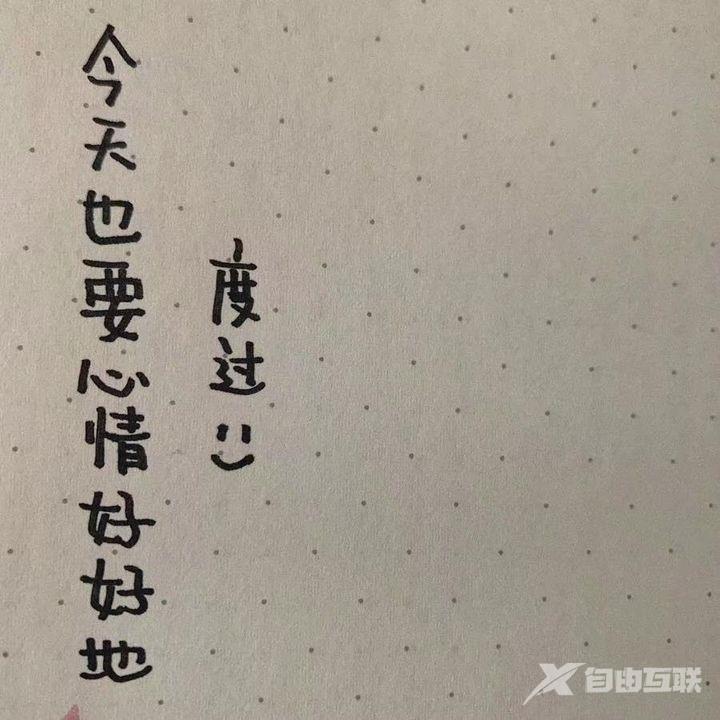 今天也要心情好好地
度过 :)
自由互联